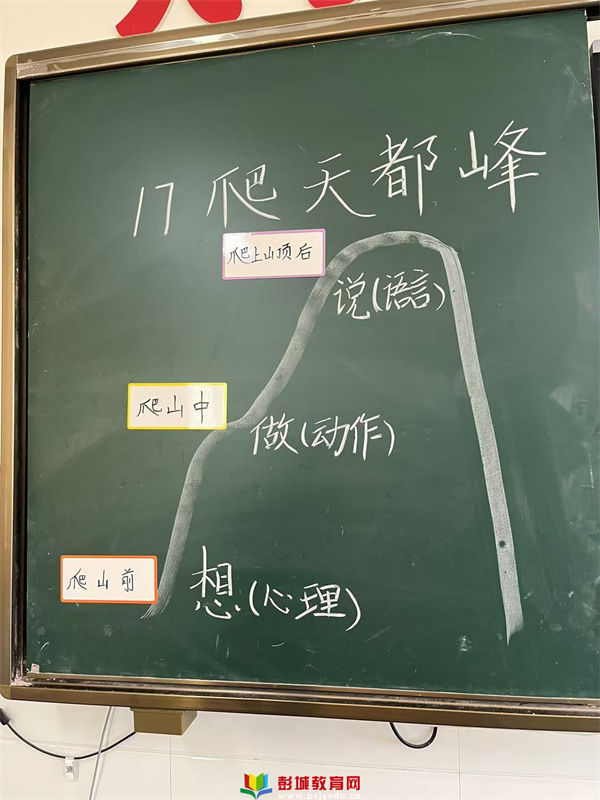 17 爬天都峰
爬上山顶后
说(语言)
爬山中
做(动作)
爬山前
想(心理)
彭城教育网
www.pcjyedu.cn